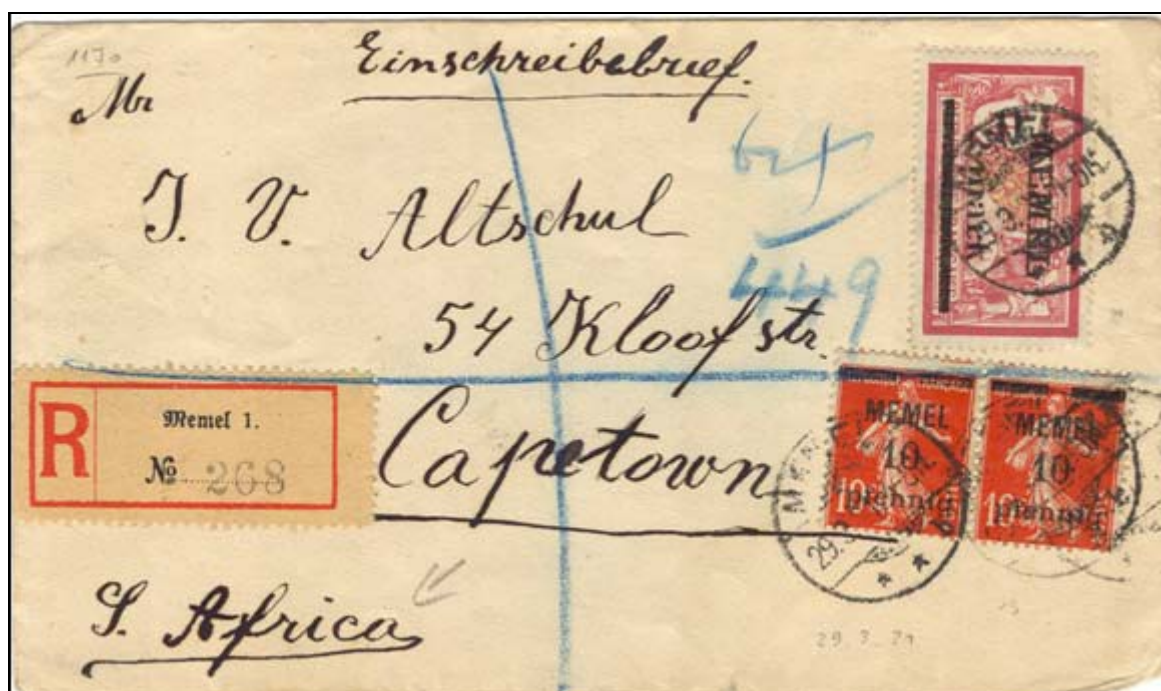 1170
Einschreibebrief.
Mr
J. V. Altschul
54 Kloof str.
Capetown
S. Africa
R
Memel 1.
No 268
449
MEMEL
MEMEL
10
pfennig
10
MEMEL
10
pfennig
10
29.3
29.3.21